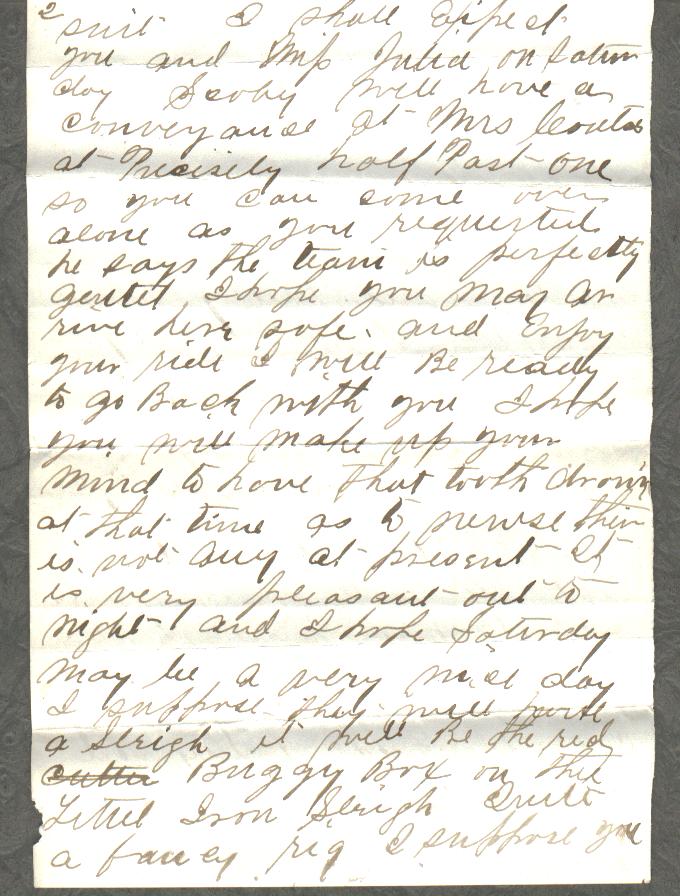 2
suit I shall Expect
you and Miss Julia on Satur
day Scoby will have a
conveyance at Mrs Coutas
at Precisely half Past one
so you can come over
alone as you requested
he says the team is perfectly
gentel I hope you may ar
rive here safe. and Enjoy
your ride I will Be ready
to go Back with you I hope
you will make up your
mind to have that tooth drawn
at that time as to newse thir
is not any at present It
is very pleasant out to
night and I hope Saturday
may be a very nice day
I suppose they will have
a Sleigh it will Be the red
cutter Buggy Box on thee
Littel Iron Sleigh Quite
a fancy rig I suppose you